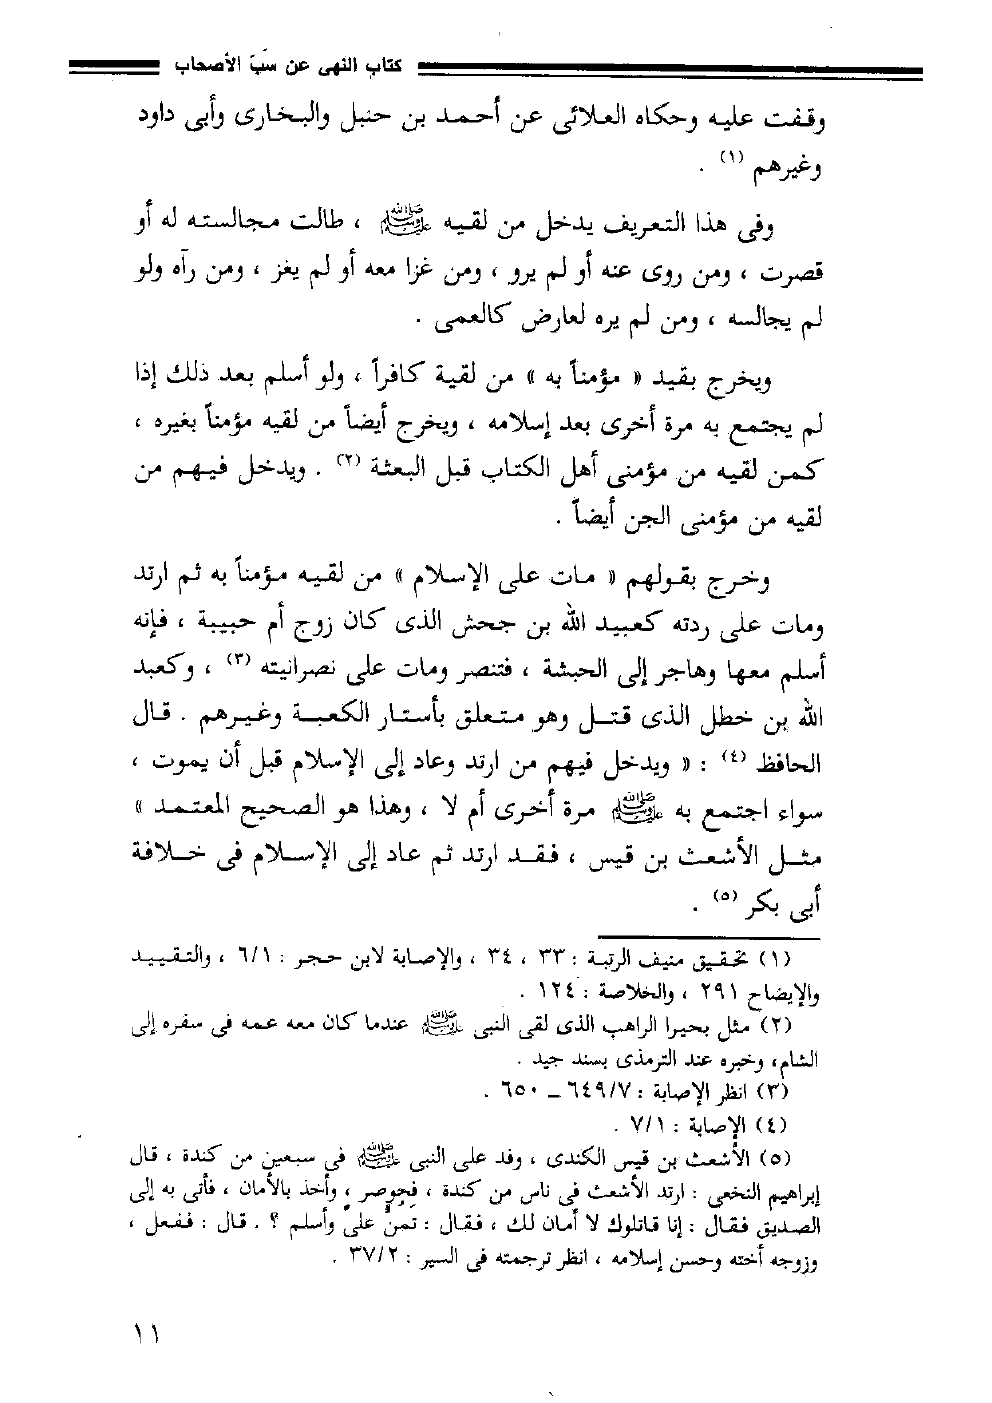 كتاب النهى عن سَبّ الأصحاب
وقفت عليه وحكاه العلائى عن أحمد بن حنبل والبخارى وأبى داود
وغيرهم (١) .
وفى هذا التعريف يدخل من لقيه ﷺ ، طالت مجالسته له أو
قصرت ، ومن روى عنه أو لم يرو ، ومن غزا معه أو لم يغز ، ومن رآه ولو
لم يجالسه ، ومن لم يره لعارض كالعمى .
ويخرج بقيد « مؤمناً به » من لقية كافراً ، ولو أسلم بعد ذلك إذا
لم يجتمع به مرة أخرى بعد إسلامه ، ويخرج أيضاً من لقيه مؤمناً بغيره ،
كمن لقيه من مؤمنى أهل الكتاب قبل البعثة (٢) . ويدخل فيهم من
لقيه من مؤمنى الجن أيضاً .
وخرج بقولهم « مات على الإسلام » من لقيه مؤمناً به ثم ارتد
ومات على ردته كعبيد الله بن جحش الذى كان زوج أم حبيبة ، فإنه
أسلم معها وهاجر إلى الحبشة ، فتنصر ومات على نصرانيته (٣) ، وكعبد
الله بن خطل الذى قتل وهو متعلق بأستار الكعبة وغيرهم . قال
الحافظ (٤) : « ويدخل فيهم من ارتد وعاد إلى الإسلام قبل أن يموت ،
سواء اجتمع به ﷺ مرة أخرى أم لا ، وهذا هو الصحيح المعتمد »
مثل الأشعث بن قيس ، فقد ارتد ثم عاد إلى الإسلام فى خلافة
أبى بكر (٥) .
(١) تحقيق منيف الرتبة : ٣٣ ، ٣٤ ، والإصابة لابن حجر : ٦/١ ، والتقييد
والإيضاح ٢٩١ ، والخلاصة : ١٢٤ .
(٢) مثل بحيرا الراهب الذى لقى النبى ﷺ عندما كان معه عمه فى سفره إلى
الشام، وخبره عند الترمذى بسند جيد .
(٣) انظر الإصابة : ٦٤٩/٧ – ٦٥٠ .
(٤) الإصابة : ٧/١ .
(٥) الأشعث بن قيس الكندى ، وفد على النبى ﷺ فى سبعين من كندة ، قال
إبراهيم النخعى : ارتد الأشعث فى ناس من كندة ، فحوصر ، وأخذ بالأمان ، فأتى به إلى
الصديق فقال : إنا قاتلوك لا أمان لك ، فقال : تمنُّ علىَّ وأسلم ؟ . قال : ففعل ،
وزوجه أخته وحسن إسلامه ، انظر ترجمته فى السير : ٣٧/٢ .
١١